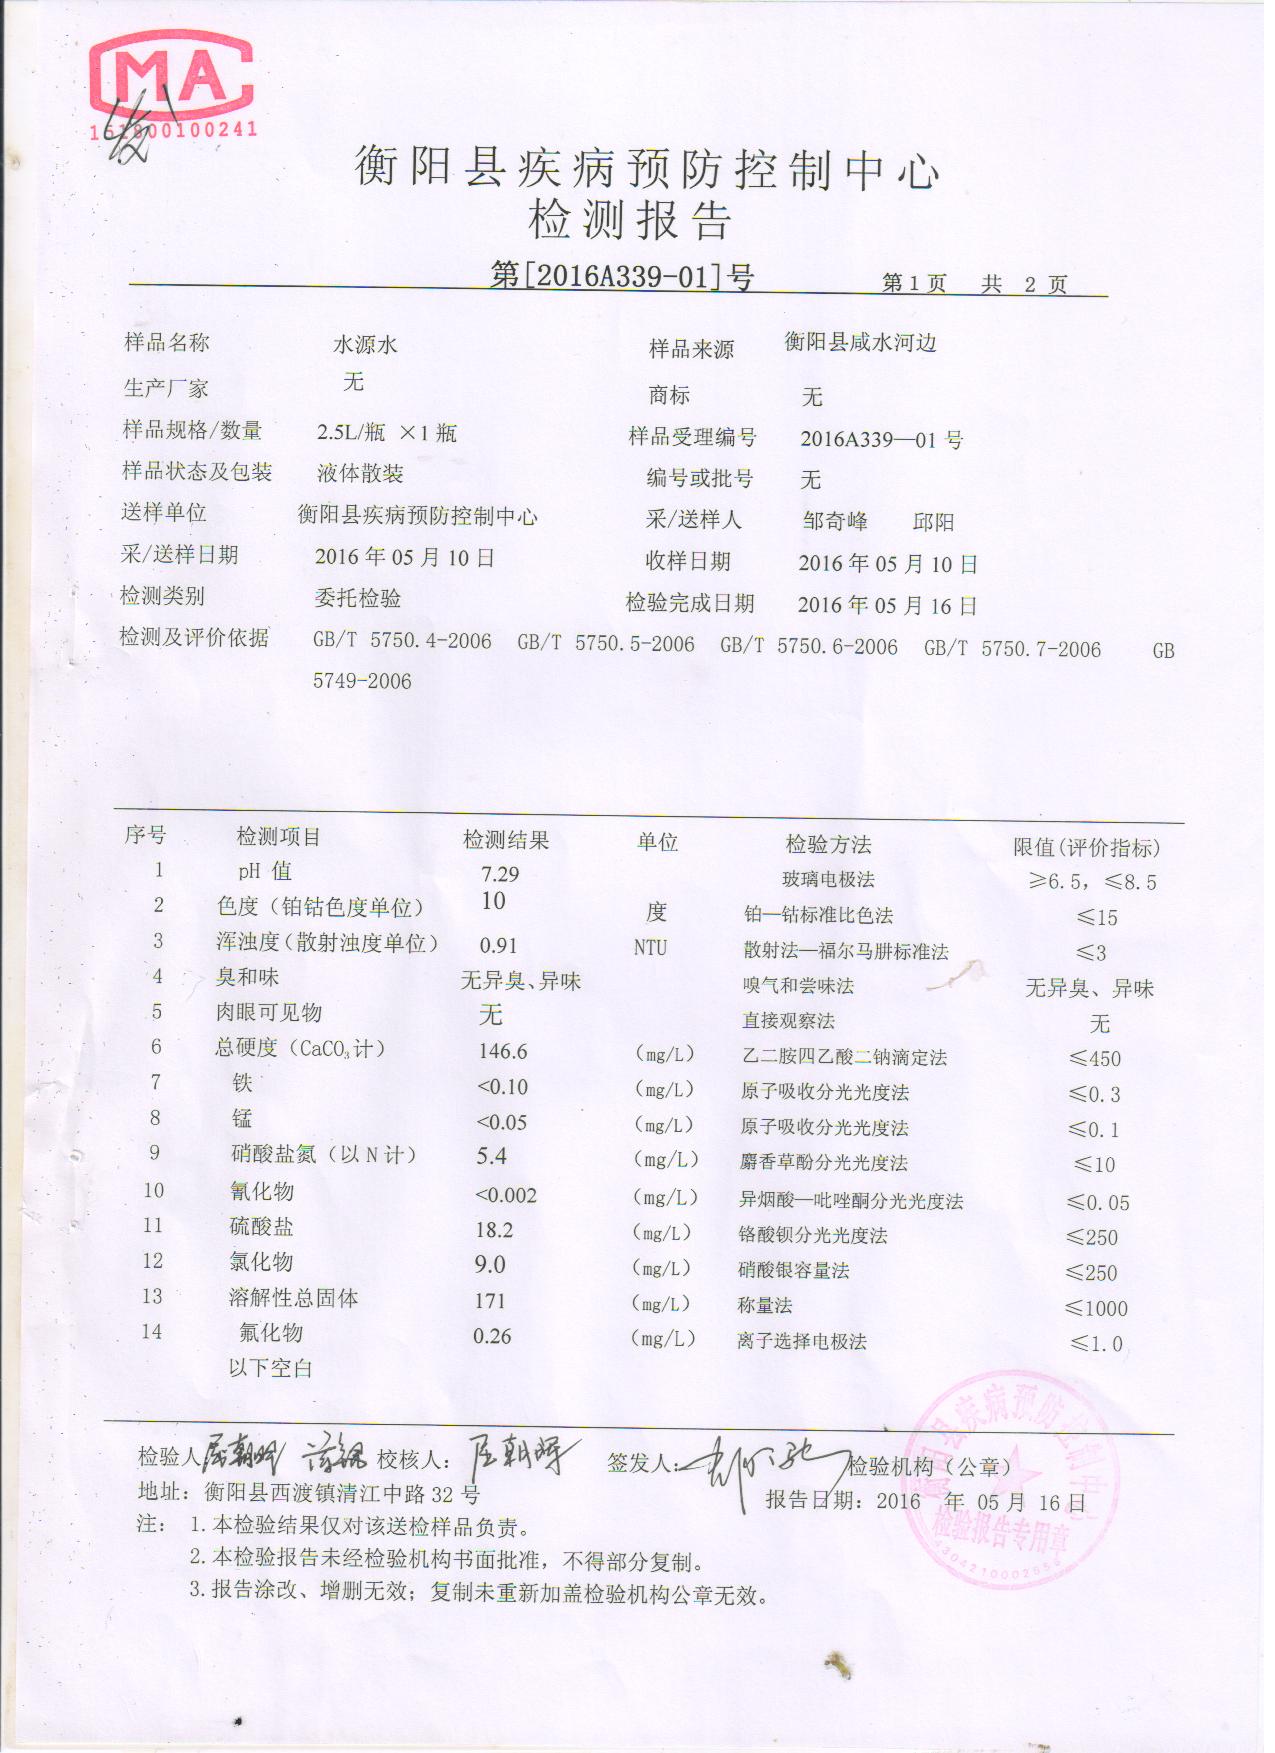 CMA
161800100241
衡阳县疾病预防控制中心
检测报告
第[2016A339-01]号 第1页 共 2 页
样品名称 水源水 样品来源 衡阳县咸水河边
生产厂家 无 商标 无
样品规格/数量 2.5L/瓶 ×1瓶 样品受理编号 2016A339—01号
样品状态及包装 液体散装 编号或批号 无
送样单位 衡阳县疾病预防控制中心 采/送样人 邹奇峰 邱阳
采/送样日期 2016年05月10日 收样日期 2016年05月10日
检测类别 委托检验 检验完成日期 2016年05月16日
检测及评价依据 GB/T 5750.4-2006 GB/T 5750.5-2006 GB/T 5750.6-2006 GB/T 5750.7-2006 GB
5749-2006
序号 检测项目 检测结果 单位 检验方法 限值(评价指标)
1 pH 值 7.29 玻璃电极法 ≥6.5，≤8.5
2 色度（铂钴色度单位） 10 度 铂—钴标准比色法 ≤15
3 浑浊度（散射浊度单位） 0.91 NTU 散射法—福尔马肼标准法 ≤3
4 臭和味 无异臭、异味 嗅气和尝味法 无异臭、异味
5 肉眼可见物 无 直接观察法 无
6 总硬度（CaCO₃计） 146.6 （mg/L） 乙二胺四乙酸二钠滴定法 ≤450
7 铁 <0.10 （mg/L） 原子吸收分光光度法 ≤0.3
8 锰 <0.05 （mg/L） 原子吸收分光光度法 ≤0.1
9 硝酸盐氮（以N计） 5.4 （mg/L） 麝香草酚分光光度法 ≤10
10 氰化物 <0.002 （mg/L） 异烟酸—吡唑酮分光光度法 ≤0.05
11 硫酸盐 18.2 （mg/L） 铬酸钡分光光度法 ≤250
12 氯化物 9.0 （mg/L） 硝酸银容量法 ≤250
13 溶解性总固体 171 （mg/L） 称量法 ≤1000
14 氟化物 0.26 （mg/L） 离子选择电极法 ≤1.0
以下空白
检验人 校核人： 签发人： 检验机构（公章）
地址：衡阳县西渡镇清江中路32号 报告日期：2016 年 05月 16日
注： 1.本检验结果仅对该送检样品负责。
2.本检验报告未经检验机构书面批准，不得部分复制。
3.报告涂改、增删无效；复制未重新加盖检验机构公章无效。
衡阳县疾病预防控制中心
检验报告专用章